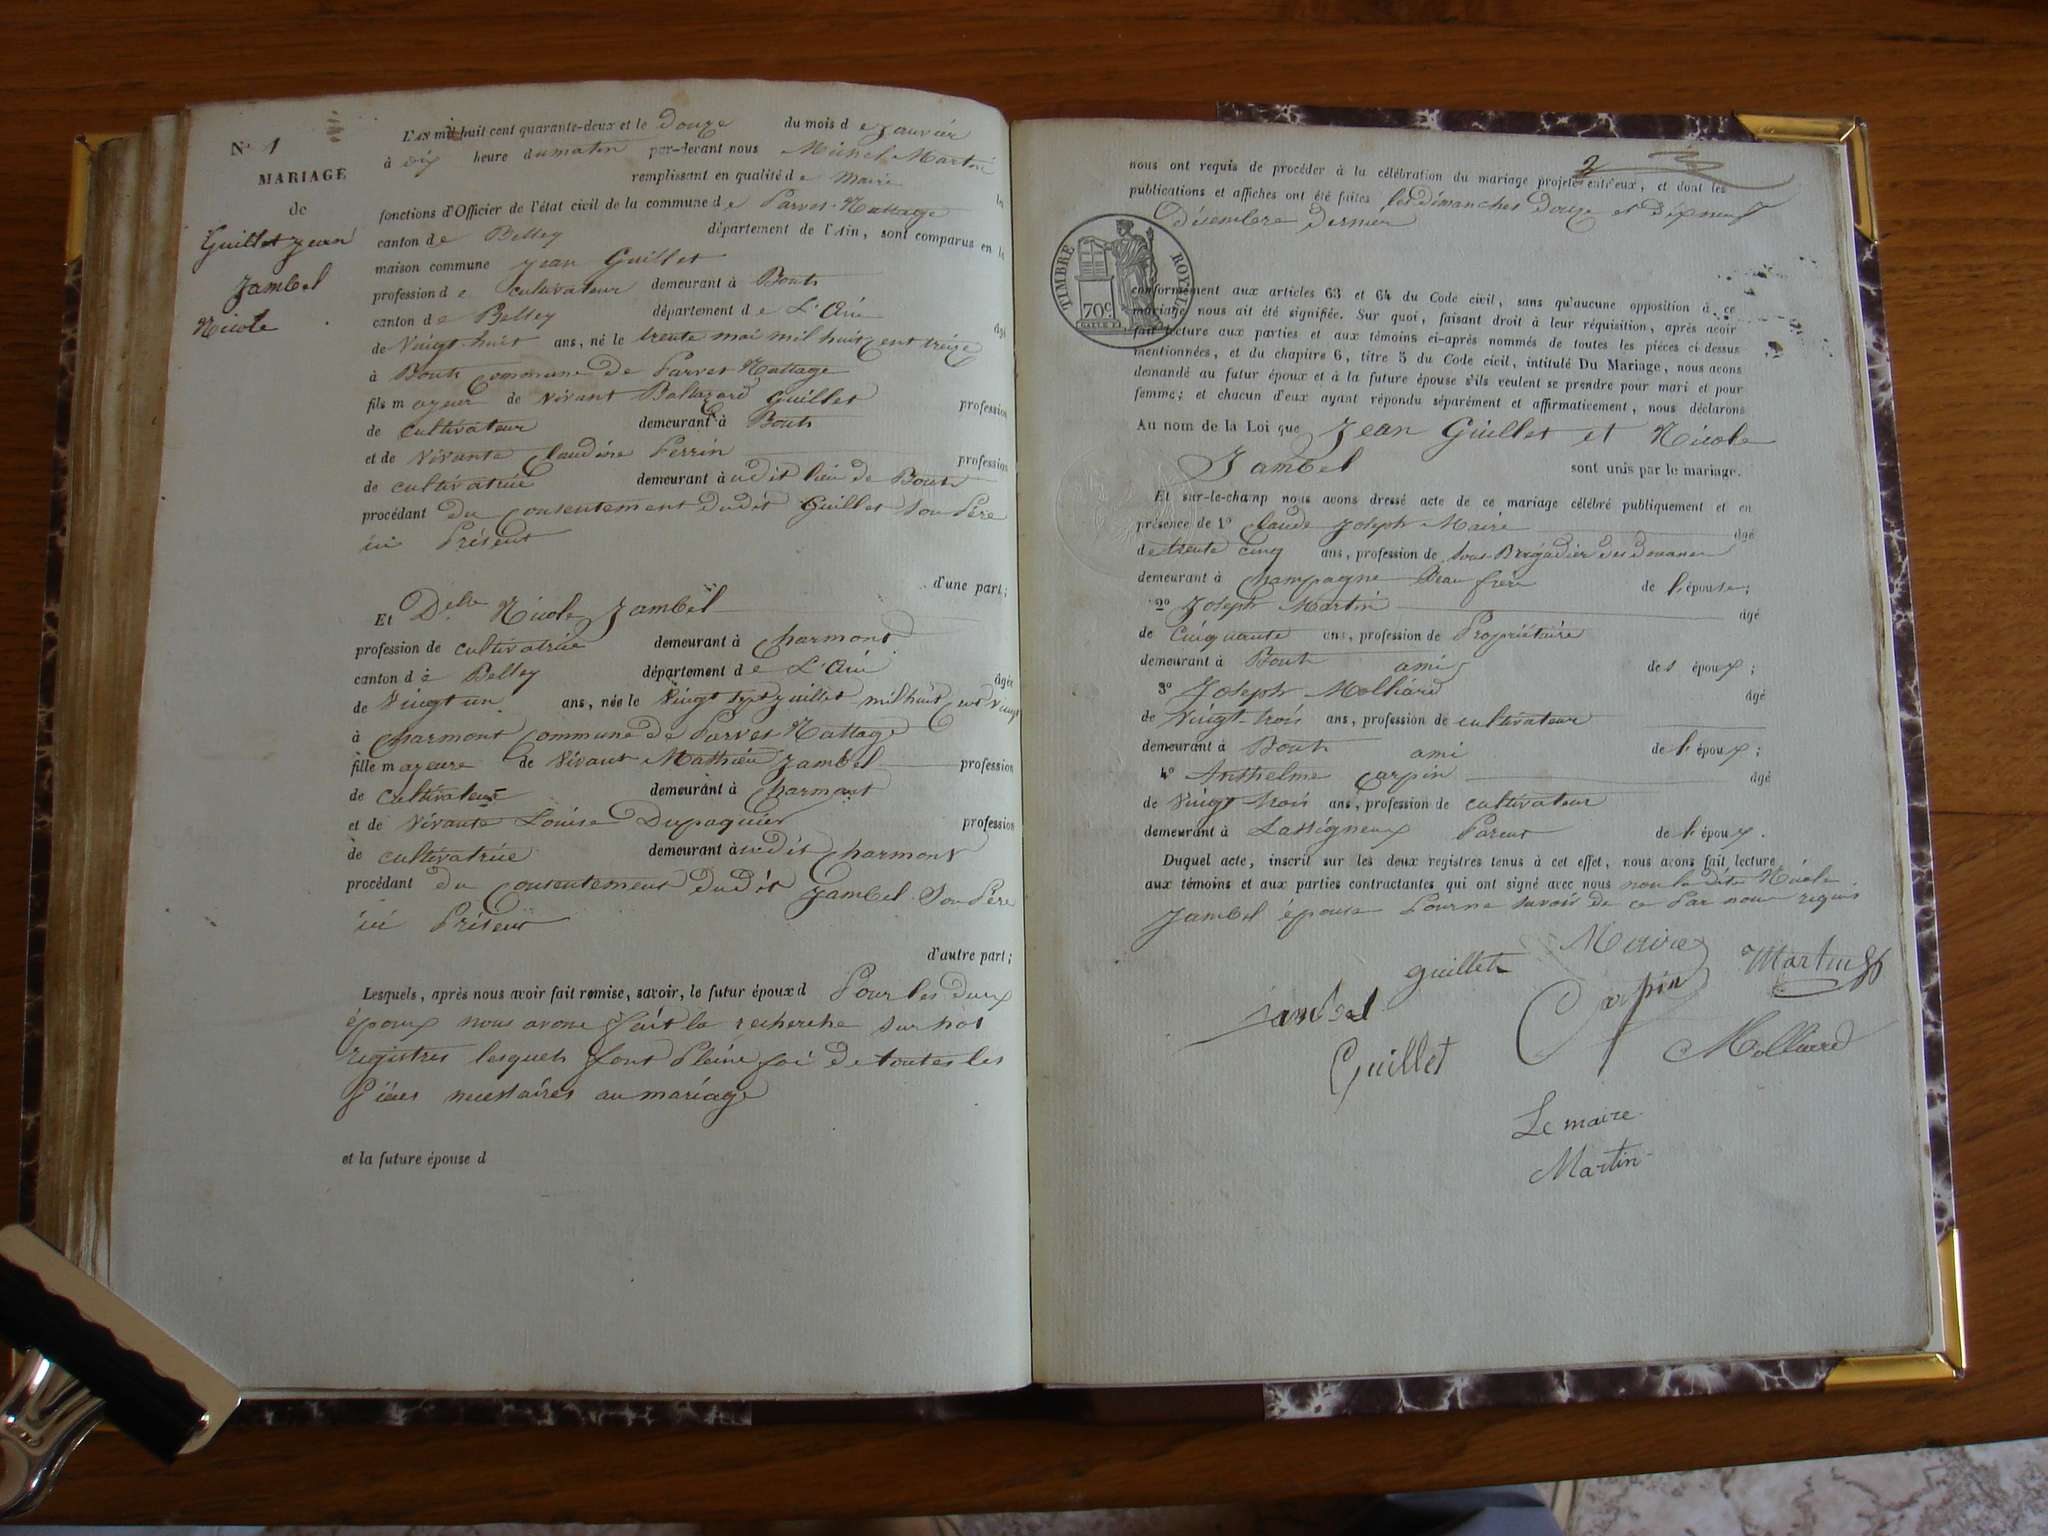 N° 1
MARIAGE
de
Guillet Jean
Jambel
Nicole
L'AN mil huit cent quarante-deux et le Douze du mois de Janvier
à dix heure du matin par-devant nous Michel Martin
remplissant en qualité de Maire les
fonctions d'Officier de l'état civil de la commune de Parves-Nattage
canton de Belley département de l'Ain, sont comparus en la
maison commune Jean Guillet
profession de cultivateur demeurant à Bout
canton de Belley département de L'Ain âgé
de Vingt-huit ans, né le trente mai mil huit cent treize
à Bout Commune de Parves Nattage
fils mayeur de vivant Baltazard Guillet profession
de cultivateur demeurant à Bout
et de vivante Claudine Perrin profession
de cultivatrice demeurant à udit lieu de Bout
procédant du Consentement Dudit Guillet Son Père
ici Présent
d'une part;
Et Delle Nicole Jambel
profession de cultivatrice demeurant à Charmont
canton de Belley département de L'Ain âgée
de Vingt un ans, née le Vingt sept Juillet mil huit Cent Vingt
à Charmont Commune de Parves Nattage
fille mayeure de Vivant Mathieu Jambel profession
de cultivateur demeurant à Charmont
et de vivante Louise Dupaquier profession
de cultivatrice demeurant à udit Charmont
procédant du Consentement Dudit Jambel Son Père
ici Présent
d'autre part;
Lesquels, après nous avoir fait remise, savoir, le futur époux d Pour les deux
époux nous avons fait la recherche Sur nos
registres lesquels font Pleine foi de toutes les
Pièces necessaires au mariage
et la future épouse d
2
nous ont requis de procéder à la célébration du mariage projeté entr'eux, et dont les
publications et affiches ont été faites les dimanches douze et dixneuf
Décembre dernier
TIMBRE ROYAL
70c
conformément aux articles 63 et 64 du Code civil, sans qu'aucune opposition à ce
mariage nous ait été signifiée. Sur quoi, faisant droit à leur réquisition, après avoir
fait lecture aux parties et aux témoins ci-après nommés de toutes les pièces ci-dessus
mentionnées, et du chapitre 6, titre 5 du Code civil, intitulé Du Mariage, nous avons
demandé au futur époux et à la future épouse s'ils veulent se prendre pour mari et pour
femme; et chacun d'eux ayant répondu séparément et affirmativement, nous déclarons
Au nom de la Loi que Jean Guillet et Nicole
Jambel sont unis par le mariage.
Et sur-le-champ nous avons dressé acte de ce mariage célébré publiquement et en
présence de 1° Claude Joseph Maire âgé
de trente cinq ans, profession de Sous-Brigadier des douanes
demeurant à Champagne Beau frère de l'épouse;
2° Joseph Martin âgé
de Cinquante ans, profession de Propriétaire
demeurant à Bout ami des époux;
3° Joseph Molliard âgé
de Vingt-trois ans, profession de cultivateur
demeurant à Bout ami de l'époux;
4° Anthelme Carpin âgé
de Vingt trois ans, profession de cultivateur
demeurant à Lassigneux Parent de l'époux.
Duquel acte, inscrit sur les deux registres tenus à cet effet, nous avons fait lecture
aux témoins et aux parties contractantes qui ont signé avec nous non la dite Nicole
Jambel épouse Pour ne savoir de ce Par nous requis
Maire
guillet Martin
Jambel Carpin
Guillet Molliard
Le maire
Martin